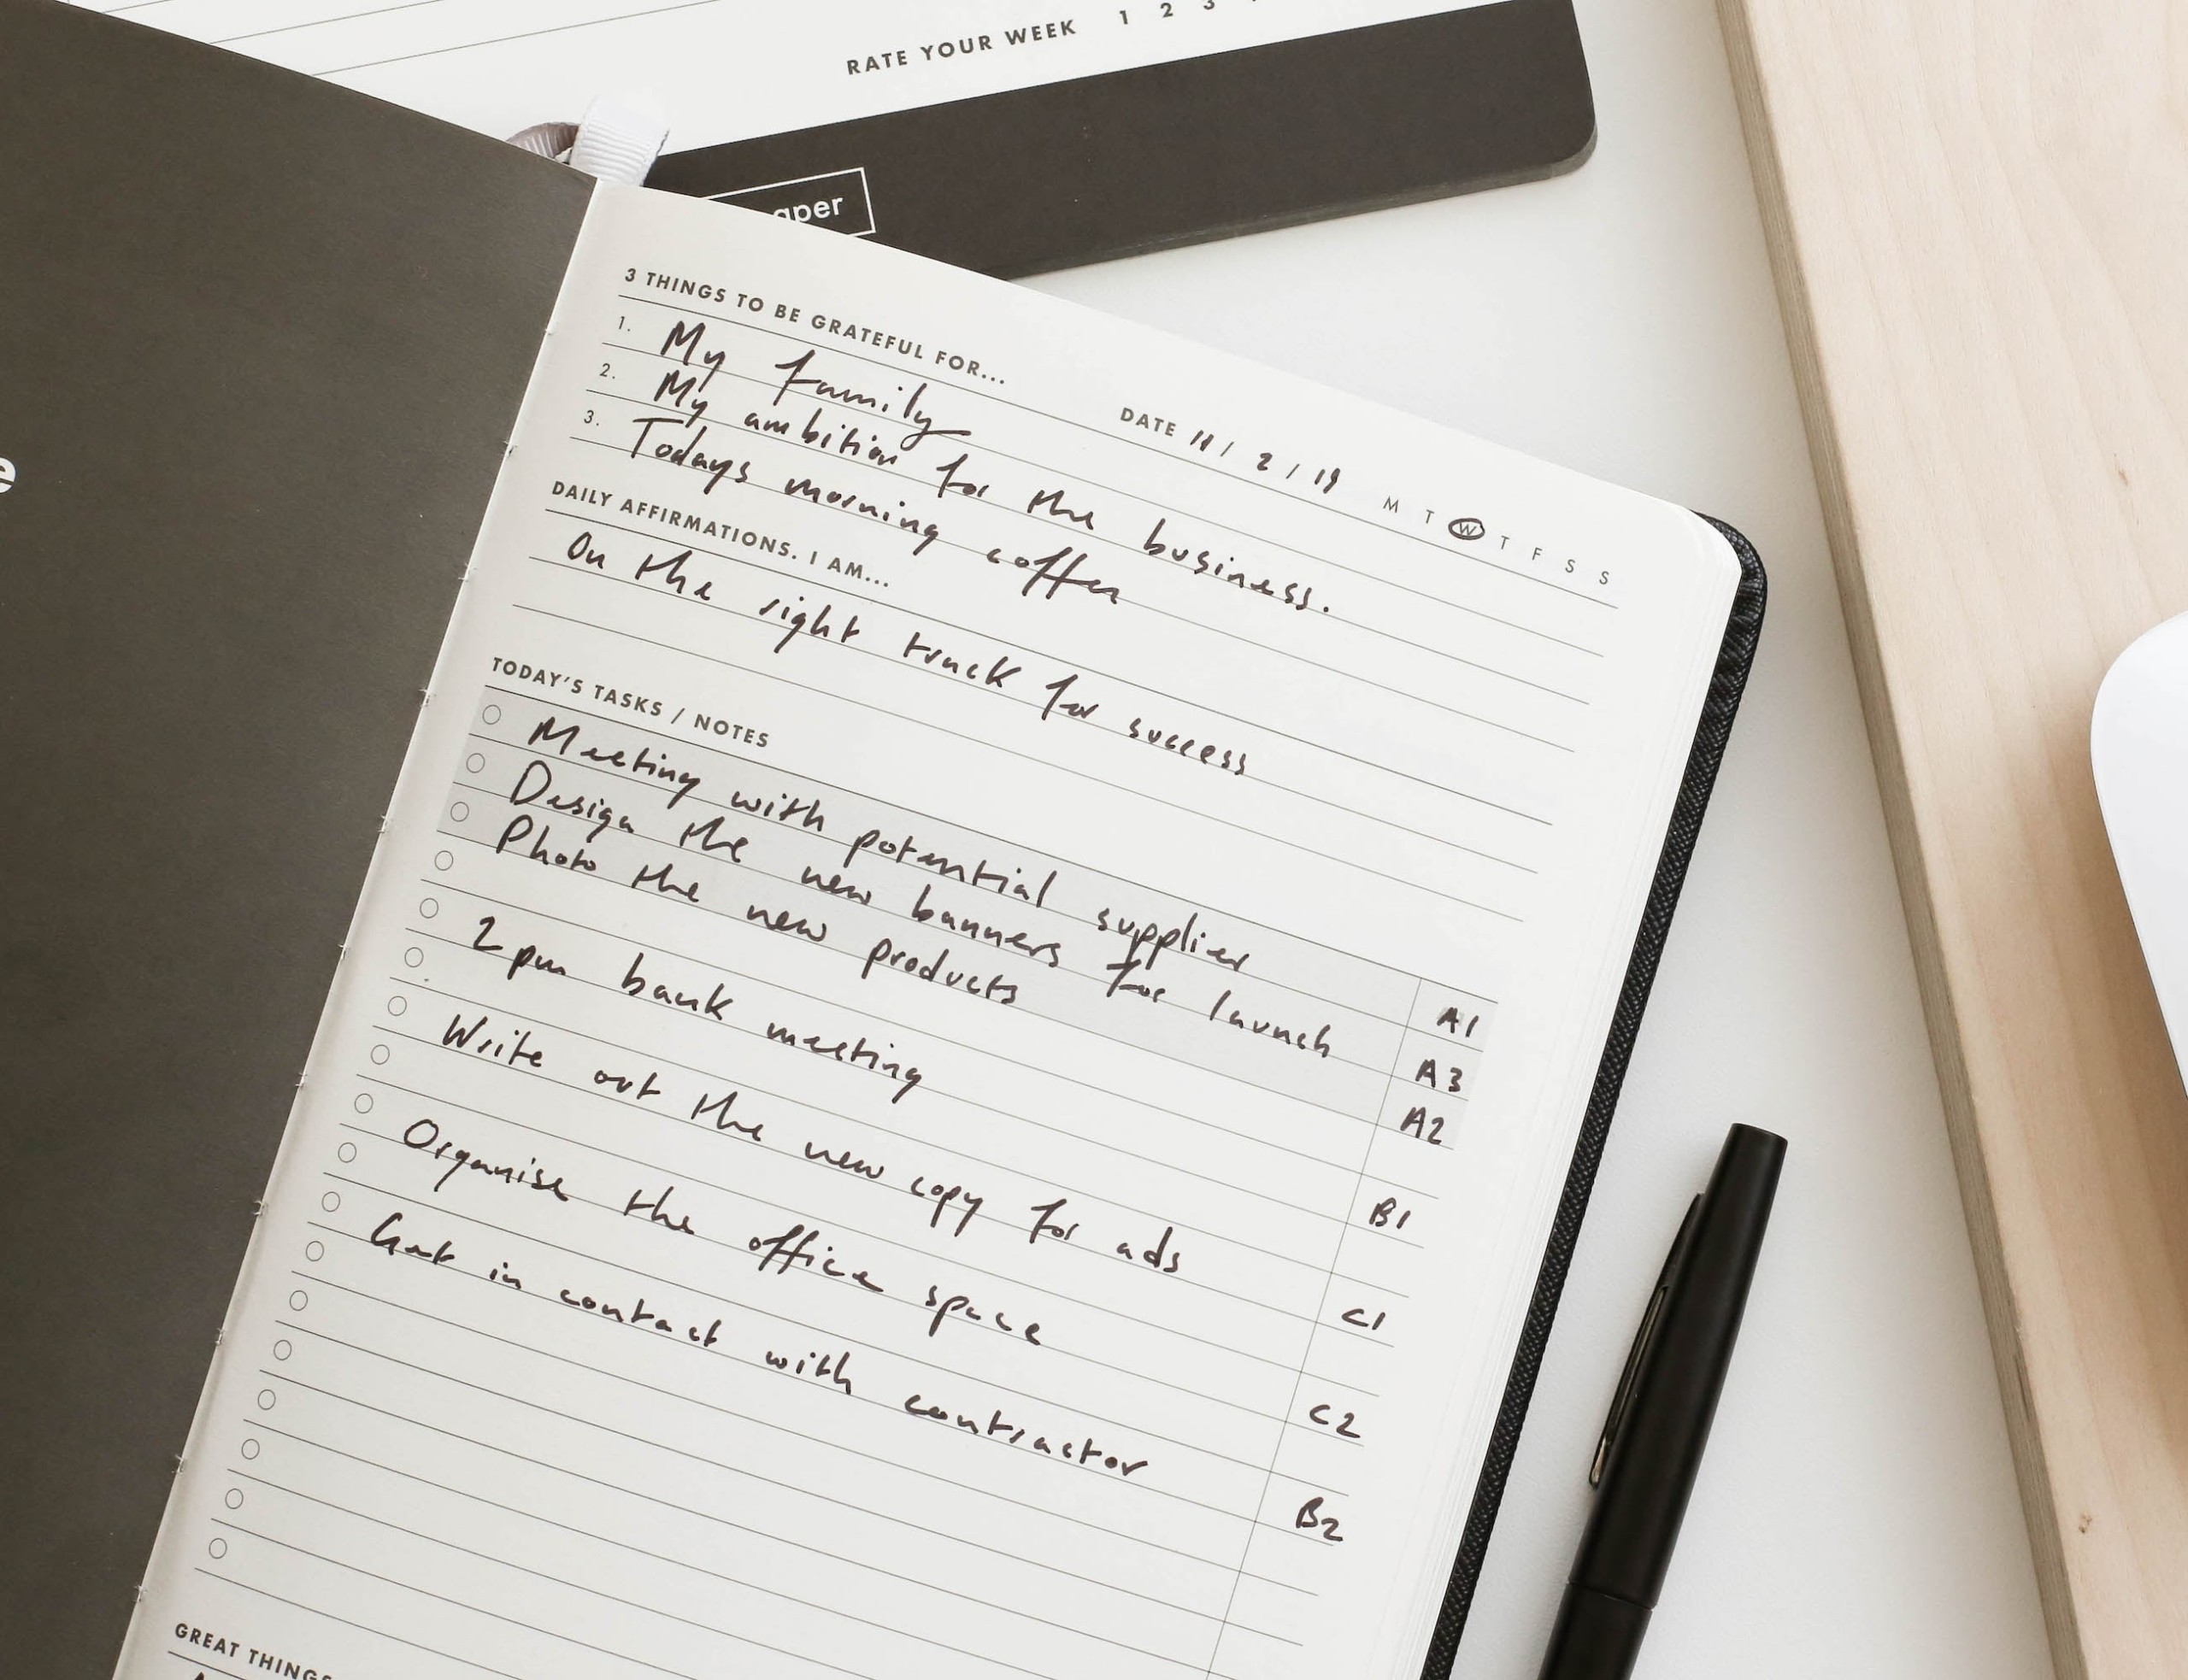 RATE YOUR WEEK 1 2 3
aper
e
3 THINGS TO BE GRATEFUL FOR...
DATE 11 / 2 / 19 M T W T F S S
1. My family
2. My ambition for the business.
3. Todays morning coffee
DAILY AFFIRMATIONS. I AM...
On the right track for success
TODAY'S TASKS / NOTES
Meeting with potential supplier A1
Design the new banners for launch A3
Photo the new products A2
2pm bank meeting B1
Write out the new copy for ads C1
Organise the office space C2
Get in contact with contractor B2
GREAT THINGS